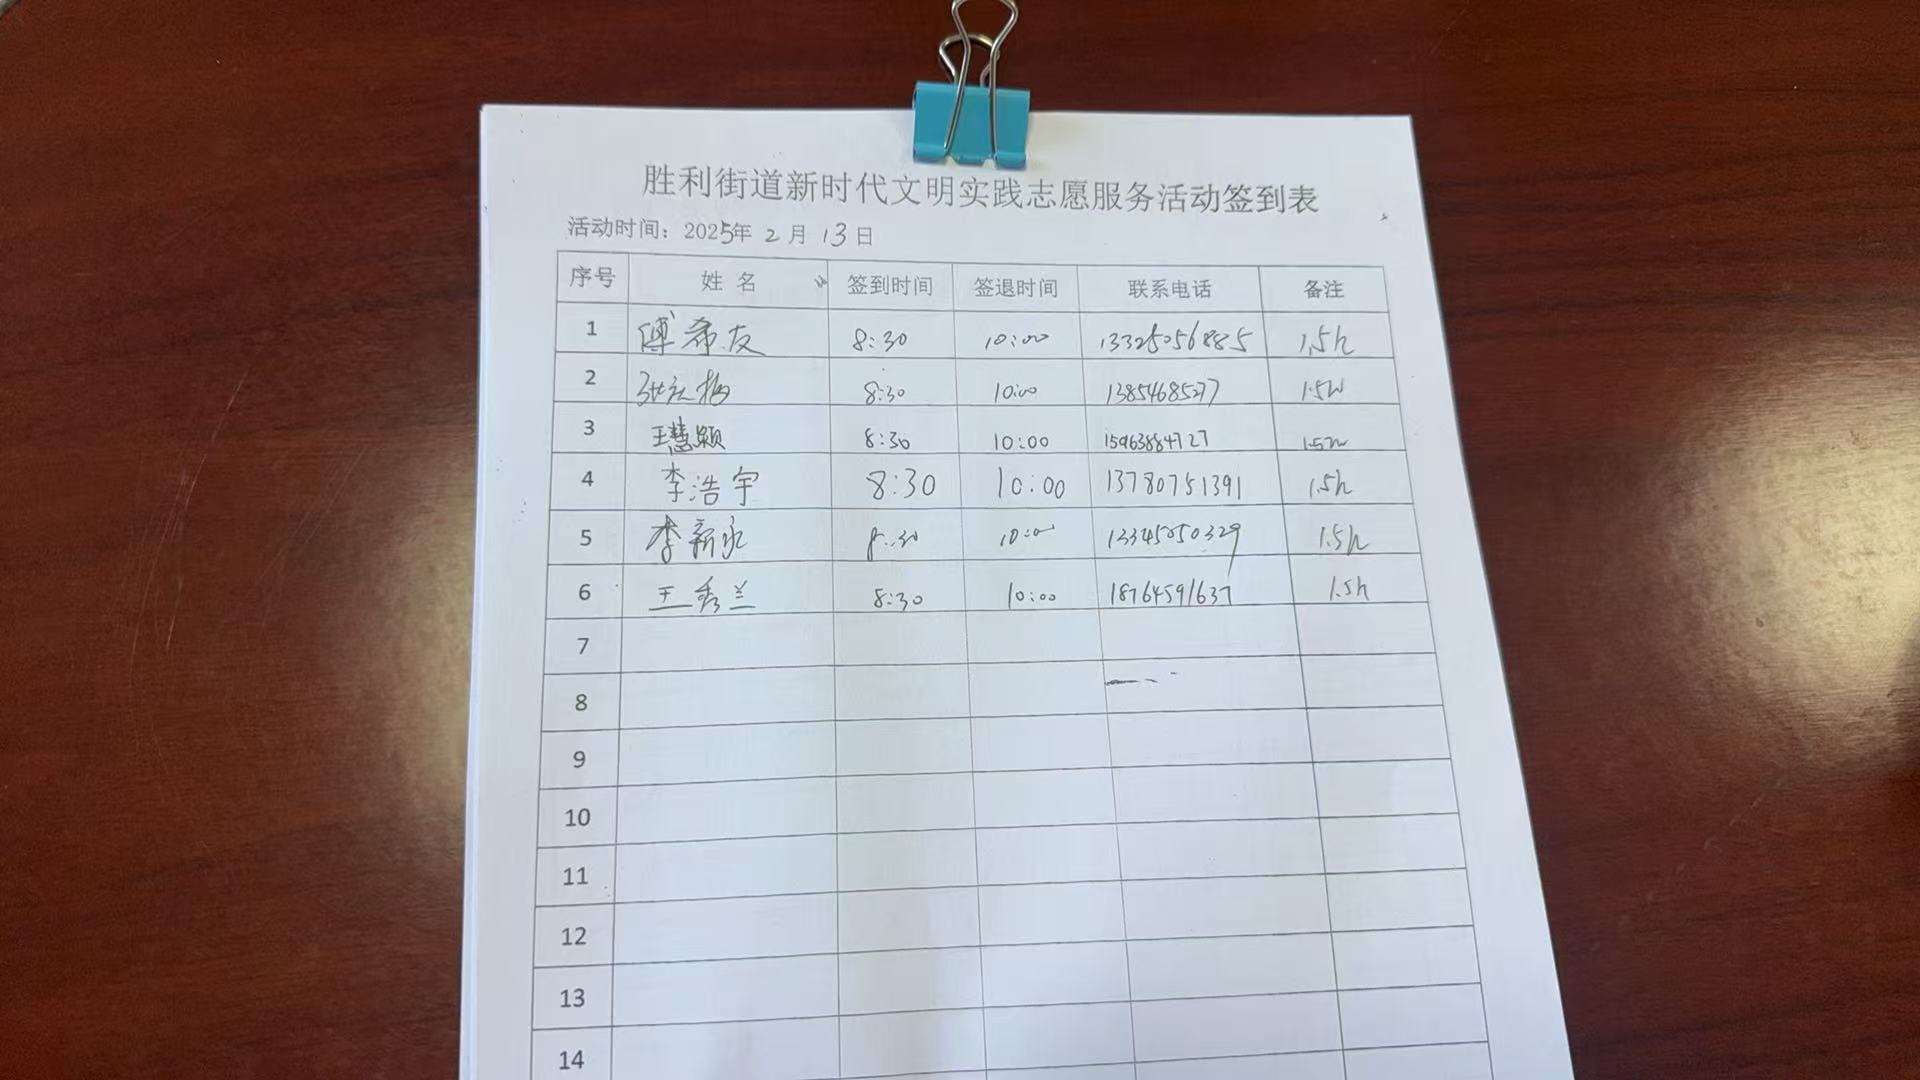 胜利街道新时代文明实践志愿服务活动签到表
活动时间：2025年 2 月 13 日
序号 姓名 签到时间 签退时间 联系电话 备注
1 傅希友 8:30 10:00 13325056885 1.5h
2 8:30 10:00 13854685277 1.5h
3 王慧颖 8:30 10:00 15963884727 1.5h
4 李浩宇 8:30 10:00 13780751391 1.5h
5 李新永 8:30 10:00 13345050329 1.5h
6 王秀兰 8:30 10:00 18764591637 1.5h
7
8
9
10
11
12
13
14